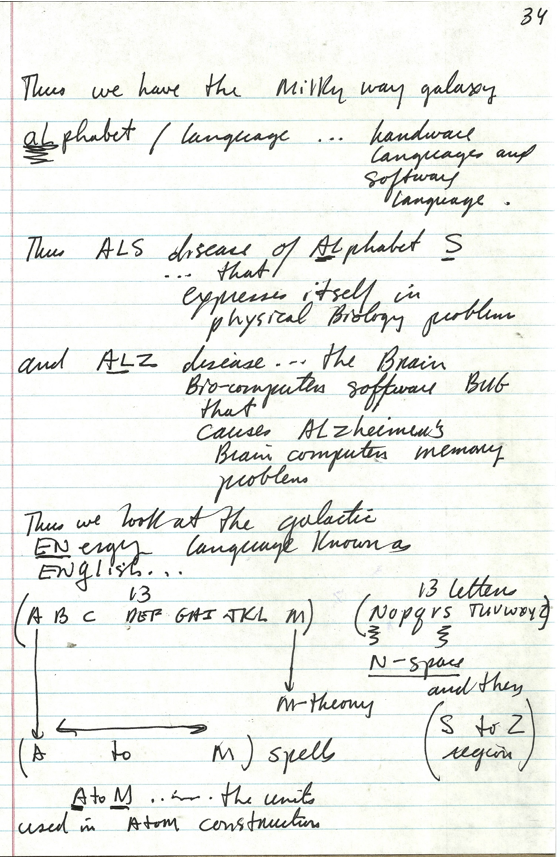 34
Thus we have the Milky way galaxy
aLphabet / language ... hardware
languages and
software
language .
Thus ALS disease of ALphabet S
... that
expresses itself in
physical Biology problem
and ALZ disease ... the Brain
Bio-computer software BUG
that
causes ALzheimer's
Brain computer memory
problem
Thus we look at the galactic
ENergy language known as
ENGlish...
13 13 letters
(A B C DEF GHI JKL M) (Nopqrs TUVWXYZ)
N-space
and then
M-theory
(S to Z
region)
(A to M) spells
A to M ...... the units
used in Atom construction